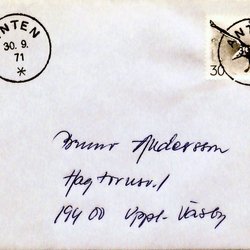 ANTEN
30. 9.
71
*
ANTEN
30
Bruno Andersson
Hagtornsv. 1
194 00 Uppl-Väsby